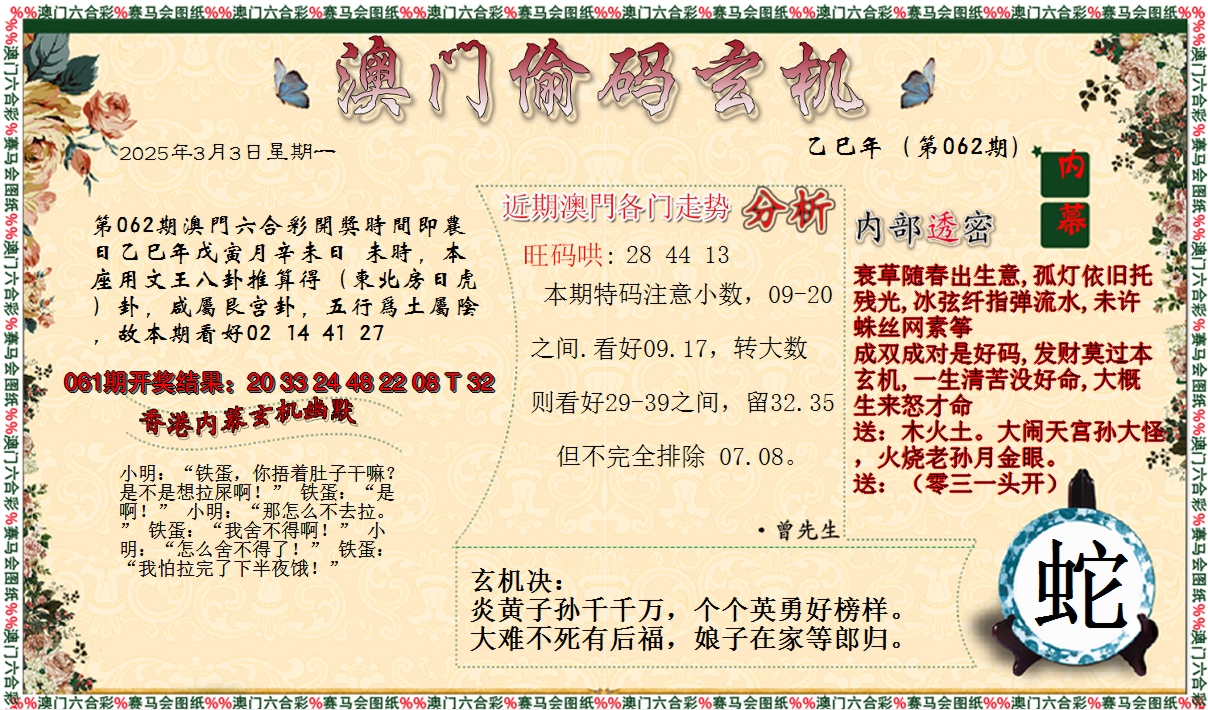 %%澳门六合彩%赛马会图纸%%澳门六合彩%赛马会图纸%%澳门六合彩%赛马会图纸%%澳门六合彩%赛马会图纸%%澳门六合彩%赛马会图纸%%澳门六合彩%赛马会图纸%%
澳门偷码玄机
2025年3月3日星期一
乙巳年（第062期）
内
幕
第062期澳門六合彩開獎時間即農
日乙巳年戊寅月辛未日 未時，本
座用文王八卦推算得（東北房日虎
）卦，咸屬艮宫卦，五行爲土屬陰
，故本期看好02 14 41 27
061期开奖结果：20 33 24 48 22 08 T 32
香港内幕玄机幽默
小明：“铁蛋，你捂着肚子干嘛？
是不是想拉屎啊！” 铁蛋：“是
啊！” 小明：“那怎么不去拉。
” 铁蛋：“我舍不得啊！” 小
明：“怎么舍不得了！” 铁蛋：
“我怕拉完了下半夜饿！”
近期澳門各门走势 分析
旺码哄: 28 44 13
本期特码注意小数，09-20
之间.看好09.17，转大数
则看好29-39之间，留32.35
但不完全排除 07.08。
·曾先生
内部透密
衰草随春出生意,孤灯依旧托
残光,冰弦纤指弹流水,未许
蛛丝网素筝
成双成对是好码,发财莫过本
玄机,一生清苦没好命,大概
生来怒才命
送：木火土。大闹天宫孙大怪
，火烧老孙月金眼。
送：（零三一头开）
玄机决：
炎黄子孙千千万，个个英勇好榜样。
大难不死有后福，娘子在家等郎归。
蛇
%%澳门六合彩%赛马会图纸%%澳门六合彩%赛马会图纸%%澳门六合彩%赛马会图纸%%澳门六合彩%赛马会图纸%%澳门六合彩%赛马会图纸%%澳门六合彩%赛马会图纸%%